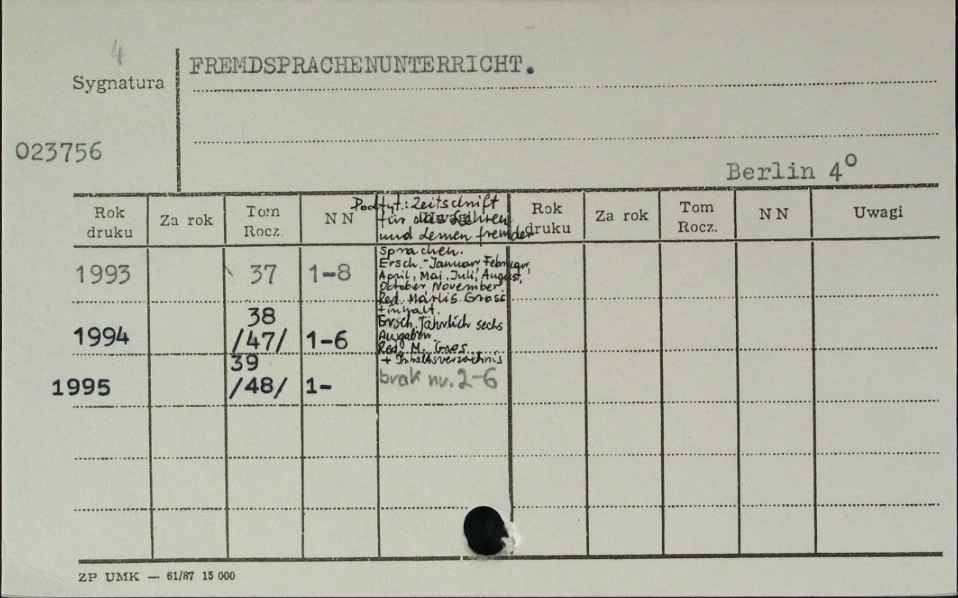 4
Sygnatura
FREMDSPRACHENUNTERRICHT.
023756
Berlin 4°
Rok druku
Za rok
Tom Rocz.
N N
Rok druku
Za rok
Tom Rocz.
N N
Uwagi
Podtyt.: Zeitschrift
für das Lehren
und Lernen fremder
Sprachen.
1993 37 1-8
Ersch.- Januar, Februar,
April, Mai, Juli, August,
October, November.
Red. Marlis Gross
+ inhalt.
1994 38 /47/ 1-6
Ersch. Jährlich sechs
Ausgaben.
Red. M. Gros
+ Inhaltsverzeichnis
1995 39 /48/ 1-
brak nr. 2-6
ZP UMK — 61/87 15 000